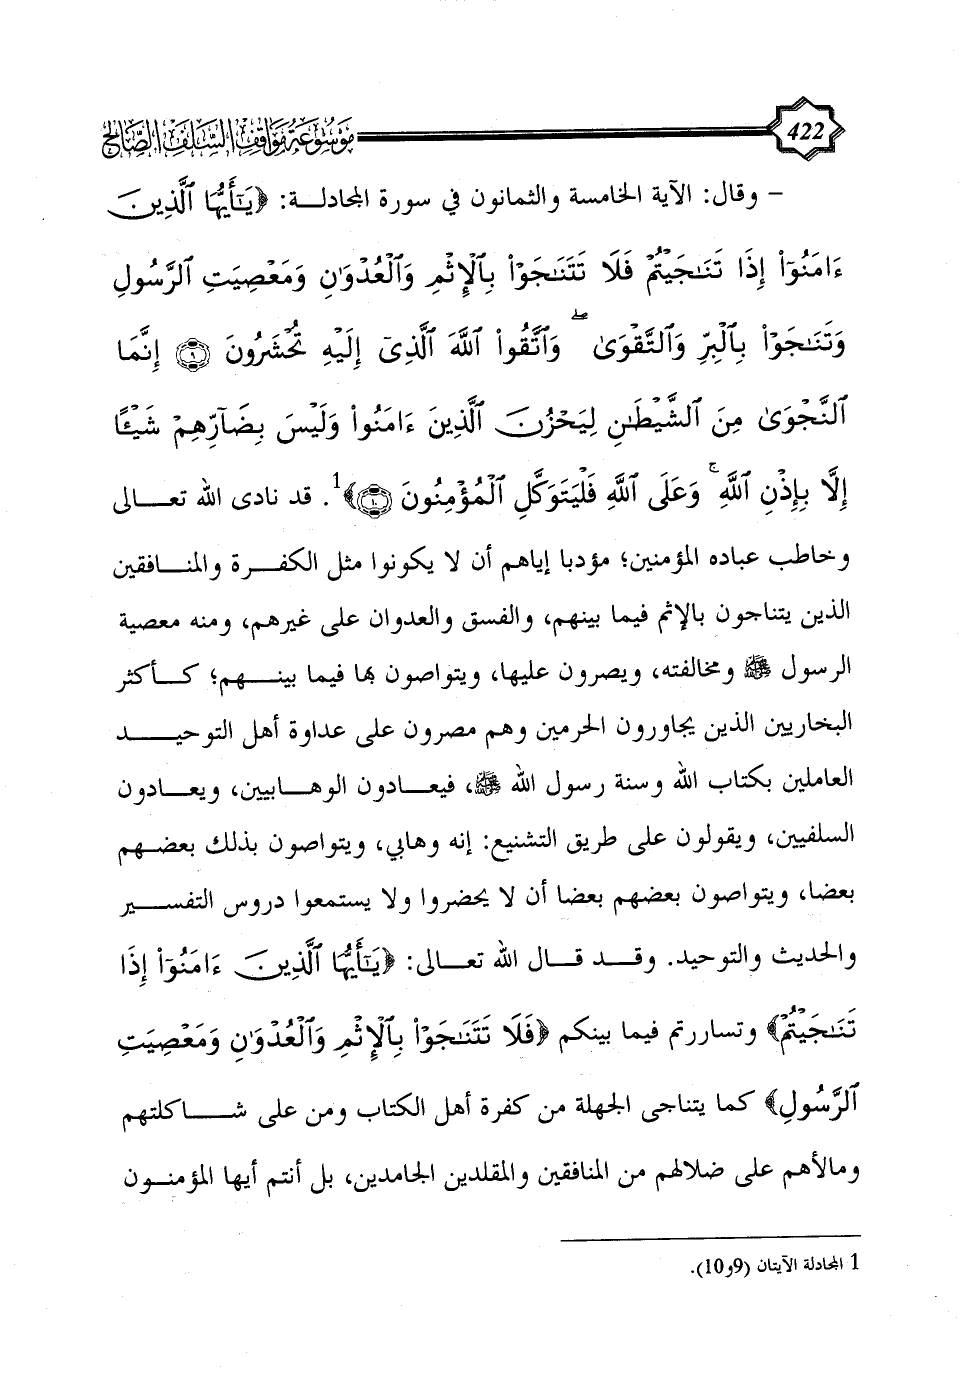 422 موسوعة مواقف السلف الصالح
– وقال: الآية الخامسة والثمانون في سورة المجادلـــة: ﴿يَٰٓأَيُّهَا ٱلَّذِينَ
ءَامَنُوٓاْ إِذَا تَنَٰجَيۡتُمۡ فَلَا تَتَنَٰجَوۡاْ بِٱلۡإِثۡمِ وَٱلۡعُدۡوَٰنِ وَمَعۡصِيَتِ ٱلرَّسُولِ
وَتَنَٰجَوۡاْ بِٱلۡبِرِّ وَٱلتَّقۡوَىٰۖ وَٱتَّقُواْ ٱللَّهَ ٱلَّذِيٓ إِلَيۡهِ تُحۡشَرُونَ ۝٩ إِنَّمَا
ٱلنَّجۡوَىٰ مِنَ ٱلشَّيۡطَٰنِ لِيَحۡزُنَ ٱلَّذِينَ ءَامَنُواْ وَلَيۡسَ بِضَآرِّهِمۡ شَيۡـًٔا
إِلَّا بِإِذۡنِ ٱللَّهِۚ وَعَلَى ٱللَّهِ فَلۡيَتَوَكَّلِ ٱلۡمُؤۡمِنُونَ ۝١٠﴾1. قد نادى الله تعـــالى
وخاطب عباده المؤمنين؛ مؤدبا إياهم أن لا يكونوا مثل الكفـــرة والمنـــافقين
الذين يتناجون بالإثم فيما بينهم، والفسق والعدوان على غيرهم، ومنه معصية
الرسول ﷺ ومخالفته، ويصرون عليها، ويتواصون بها فيما بينـــهم؛ كـــأكثر
البخاريين الذين يجاورون الحرمين وهم مصرون على عداوة أهل التوحيـــد
العاملين بكتاب الله وسنة رسول الله ﷺ، فيعـــادون الوهـــابيين، ويعـــادون
السلفيين، ويقولون على طريق التشنيع: إنه وهابي، ويتواصون بذلك بعضـــهم
بعضا، ويتواصون بعضهم بعضا أن لا يحضروا ولا يستمعوا دروس التفســـير
والحديث والتوحيد. وقـــد قـــال الله تعـــالى: ﴿يَٰٓأَيُّهَا ٱلَّذِينَ ءَامَنُوٓاْ إِذَا
تَنَٰجَيۡتُمۡ﴾ وتساررتم فيما بينكم ﴿فَلَا تَتَنَٰجَوۡاْ بِٱلۡإِثۡمِ وَٱلۡعُدۡوَٰنِ وَمَعۡصِيَتِ
ٱلرَّسُولِ﴾ كما يتناجى الجهلة من كفرة أهل الكتاب ومن على شـــاكلتهم
ومالأهم على ضلالهم من المنافقين والمقلدين الجامدين، بل أنتم أيها المؤمنـــون
1 المجادلة الآيتان (9و10).